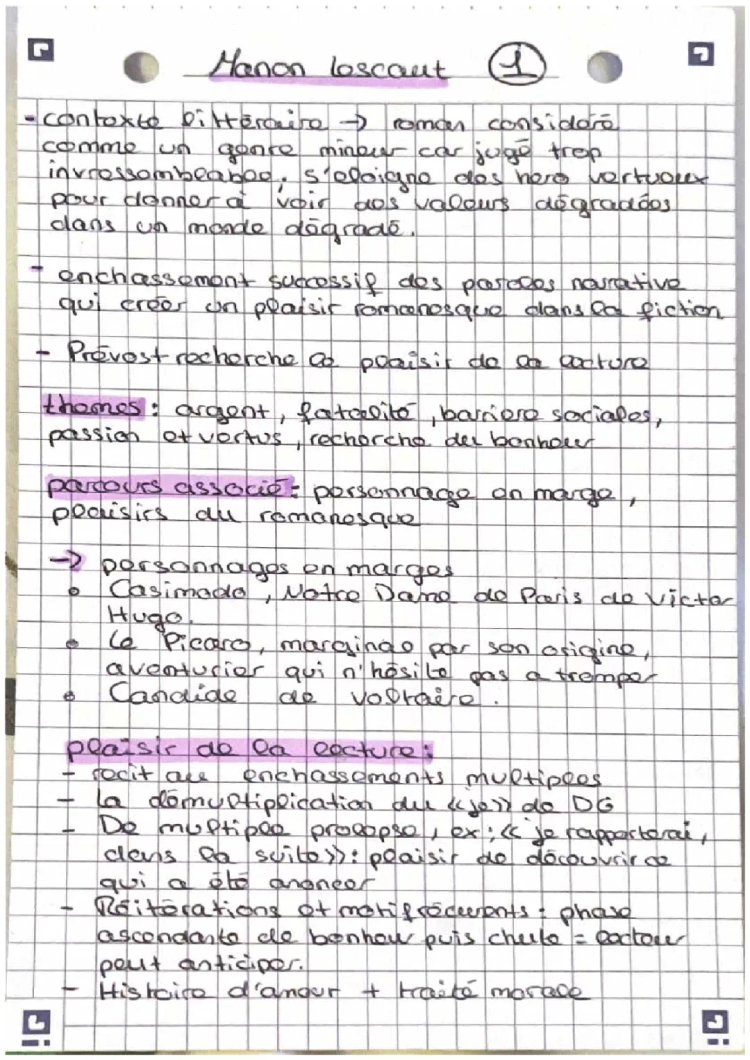 Manon lescaut 1
- contexte littéraire → roman considéré
comme un genre mineur car jugé trop
invressembable. s'eloigne des hero vertueux
pour donner à voir des valeurs dégradées
dans un monde dégradé.
- enchassement successif des paroles narrative
qui créer un plaisir romanesque dans la fiction
- Prévost recherche le plaisir de la lecture
themes : argent, fatalité, barriere sociales,
passion et vertus, recherche du bonheur
parcours associé : personnage en marge,
plaisirs du romanesque
→ personnages en marges
• Casimodo, Notre Dame de Paris de Victor
Hugo.
• Le Picaro, marginale par son origine,
aventurier qui n'hésite pas a tromper
• Candide de voltraire.
plaisir de la lecture :
- recit au enchassements multiples
- la démultiplication du «je» de DG
- De multiple prolepse, ex : « je rapporterai,
dans la suite » : plaisir de découvrir ce
qui a été anoncer
- Réitérations et motif récurents : phase
ascendante de bonheur puis chute = lecteur
peut anticiper.
- Histoire d'amour + traité morale